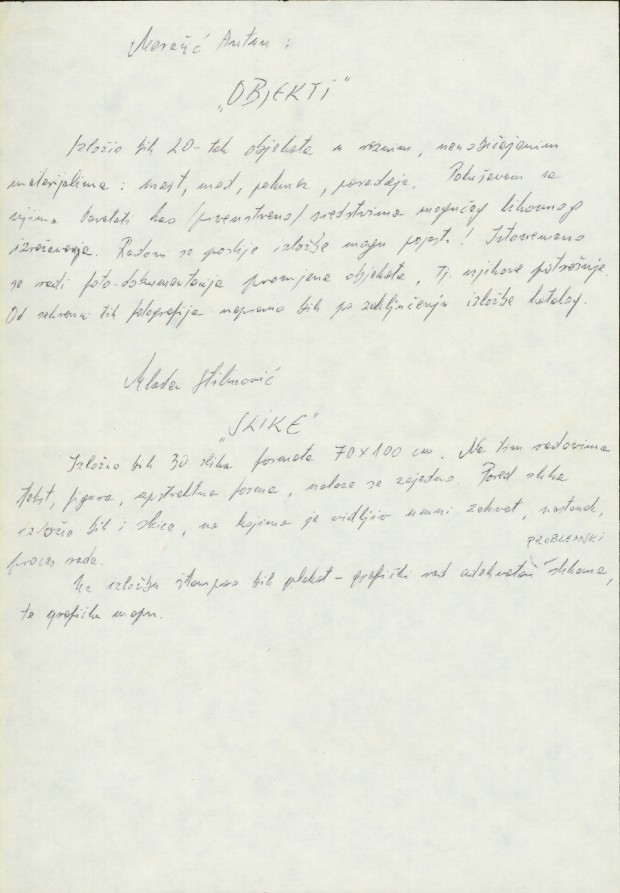 Maračić Antun :
„OBJEKTI"
Izložio bih 20-tak objekata u raznim, neuobičajenim
materijalima : mast, med, pekmez, paradajz. Pokušavam se
njima baratati kao /prvenstveno/ sredstvima mogućeg likovnog
izražavanja. Radovi se poslije izložbe mogu pojesti! Istovremeno
se radi foto-dokumentacija promjena objekata, tj. njihove potrošnje.
Od tih fotografija napravio bih po zaključenju izložbe katalog.
Mladen Stilinović
„SLIKE"
Izložio bih 30 slika formata 70x100 cm. Na tim radovima
tekst, figura, apstraktna forma, nalaze se zajedno. Pored slika
izložio bih i skice, na kojima je vidljiv umni zahvat, nastanak,
PROBLEMSKI
proces rada.
Uz izložbu štampao bih plakat - grafički rad adekvatan slikama,
te grafičku mapu.